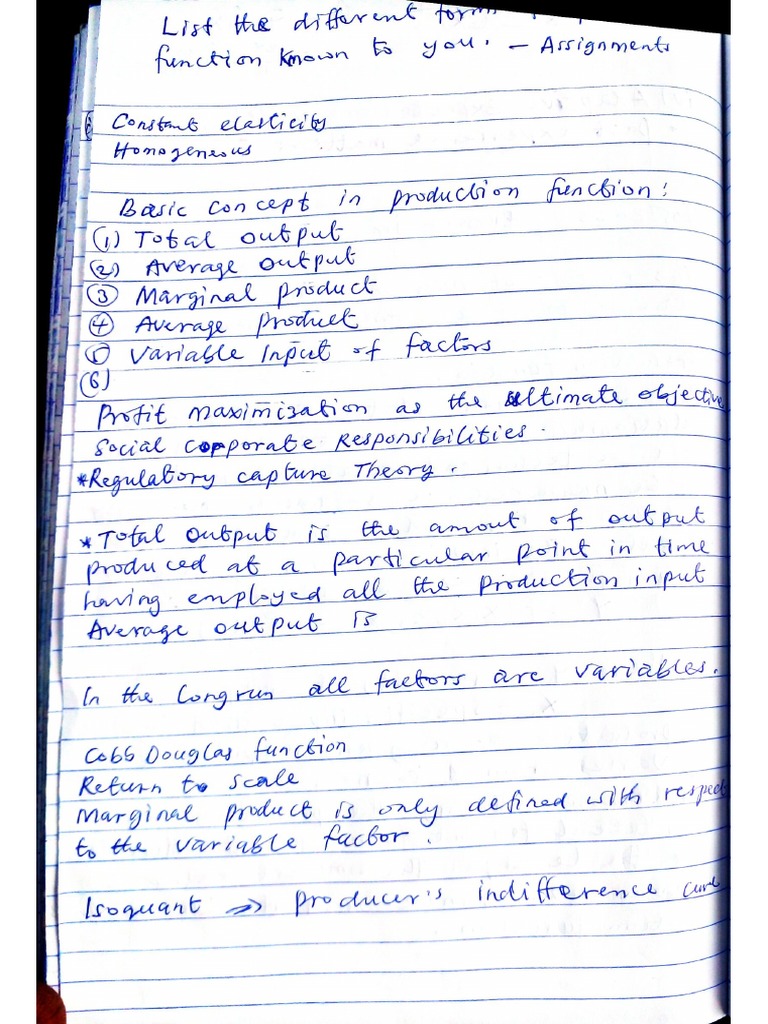 List the different form
function known to you. - Assignments
Constant elasticity
Homogeneous
Basic concept in production function:
(1) Total output
(2) Average output
(3) Marginal product
(4) Average product
(5) Variable Input of factors
(6)
Profit maximization as the ultimate objective
Social corporate Responsibilities.
*Regulatory capture Theory.
*Total output is the amout of output
produced at a particular point in time
having employed all the production input
Average output is
In the Longrun all factors are variables.
Cobb Douglas function
Return to scale
Marginal product is only defined with respect
to the variable factor.
Isoquant => producer's indifference curve